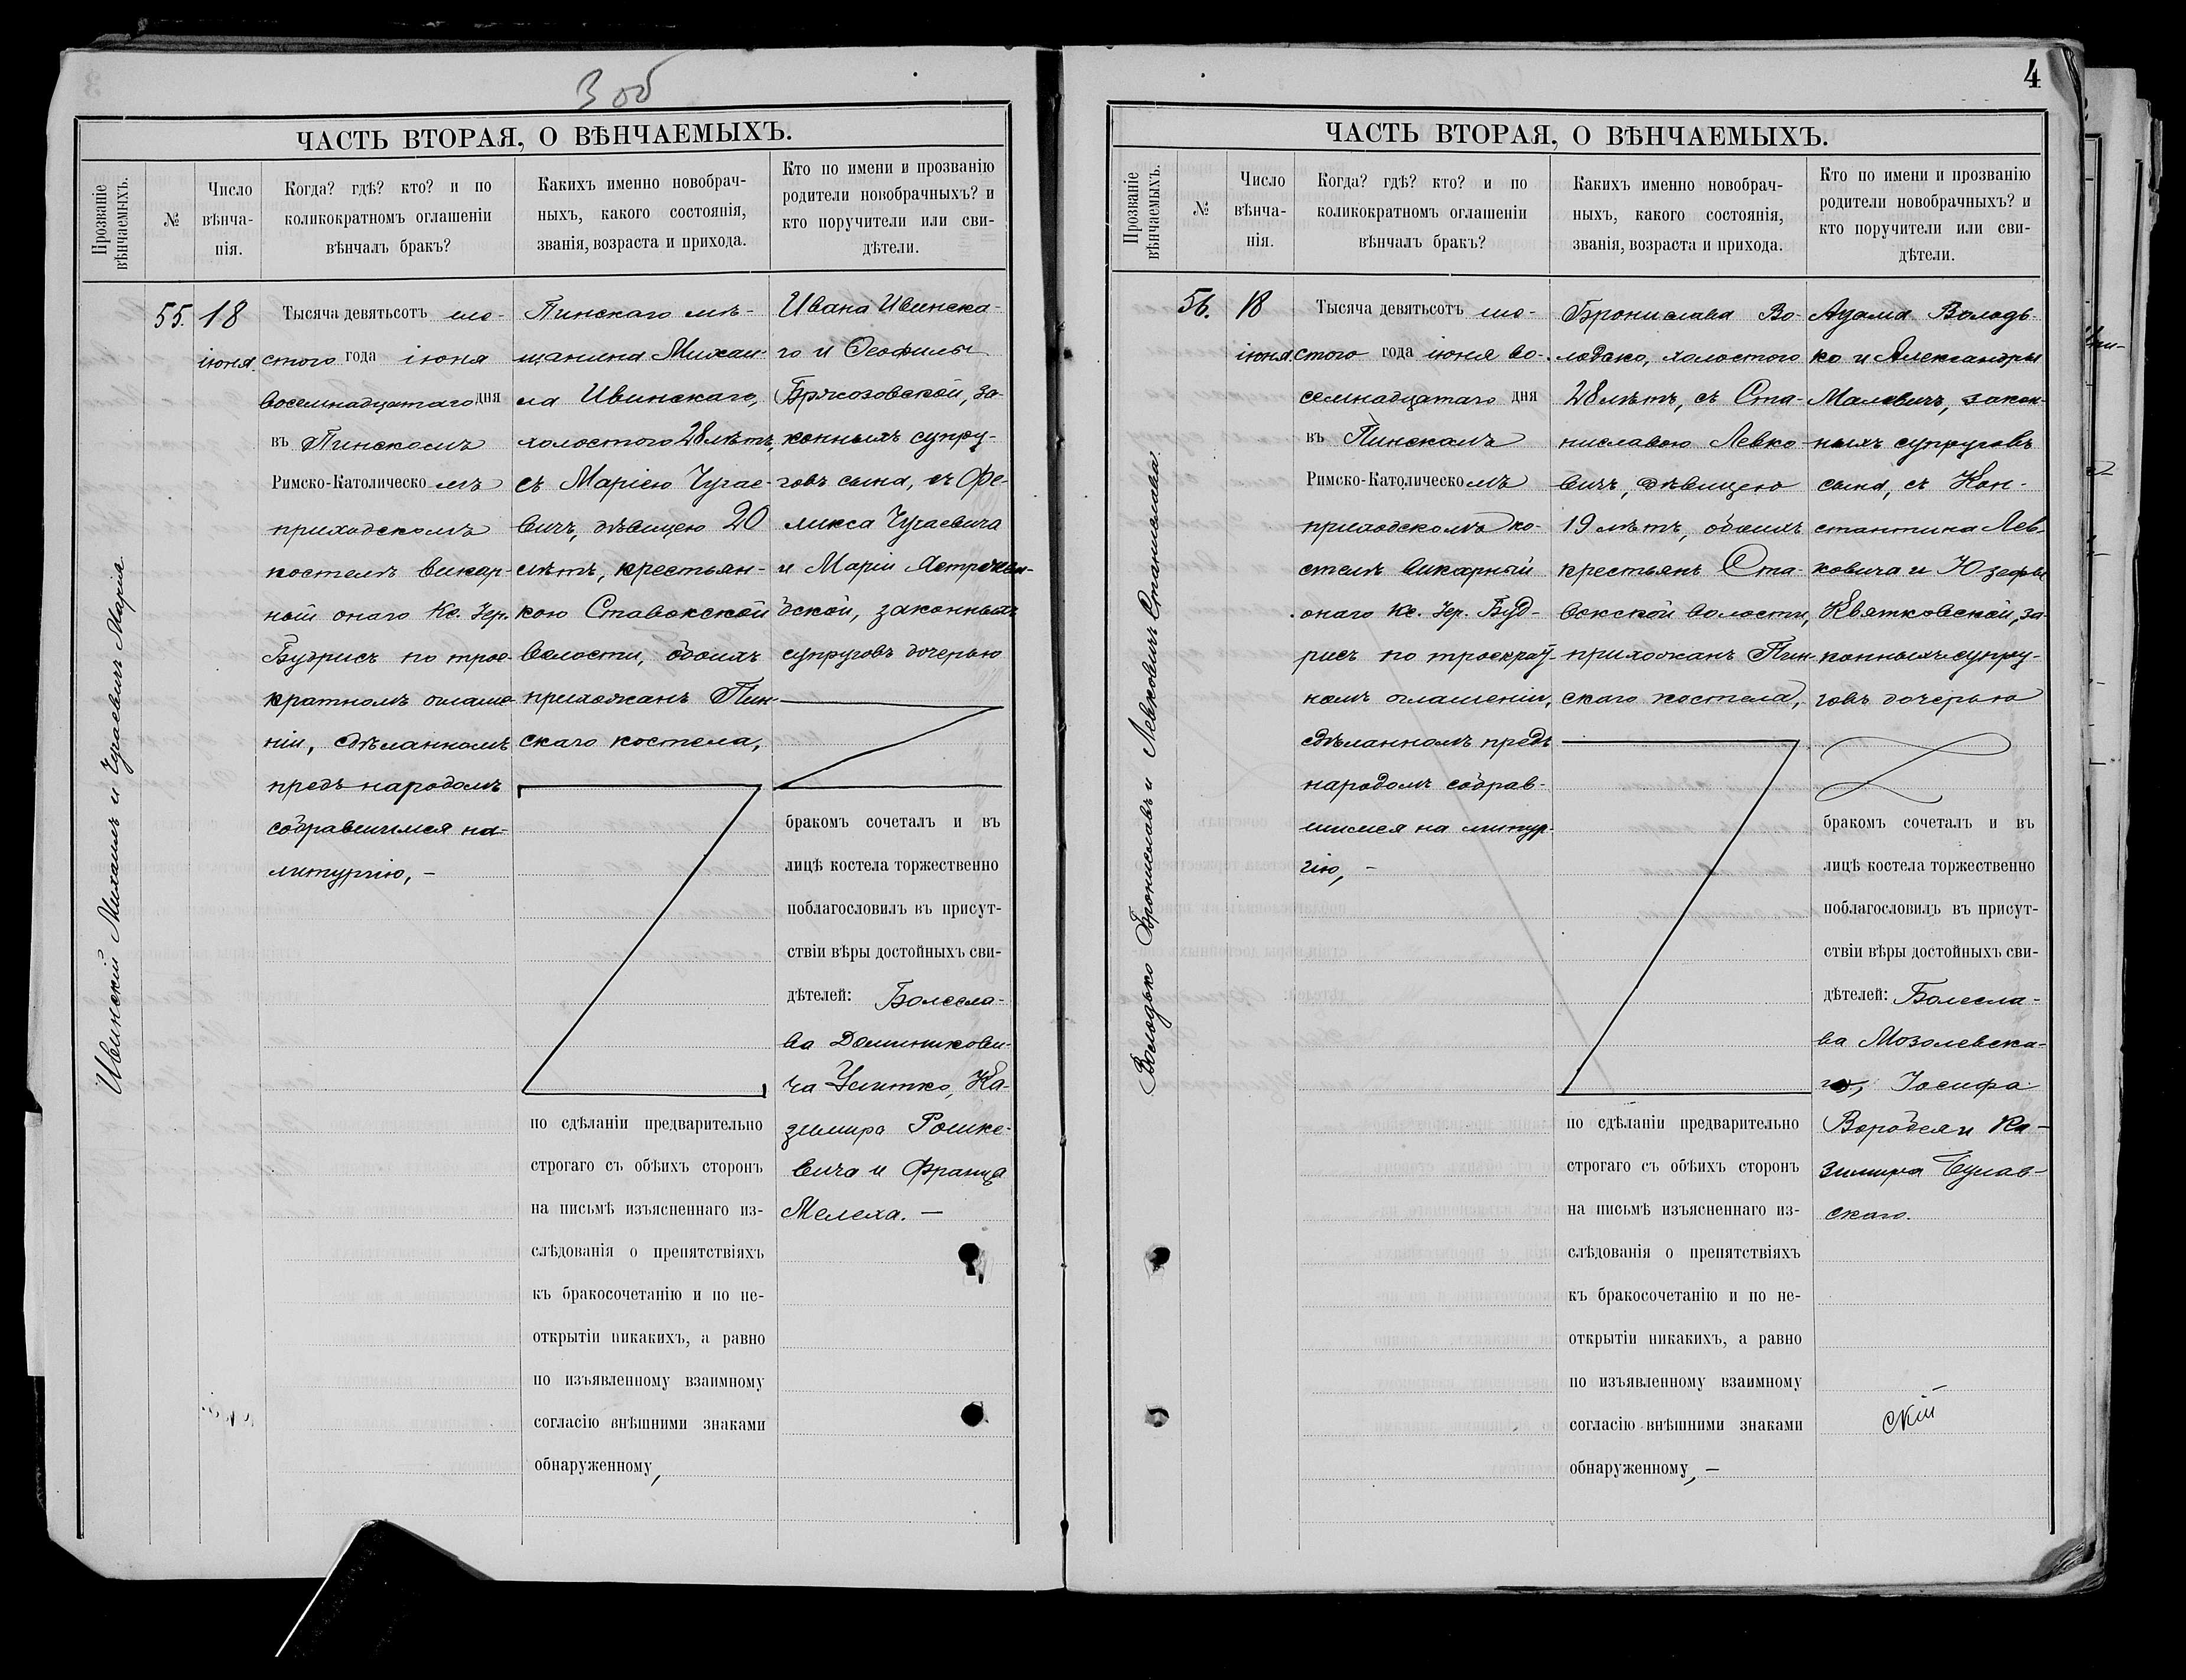 3 об
ЧАСТЬ ВТОРАЯ, О ВѢНЧАЕМЫХЪ.
Прозваніе
вѣнчаемыхъ.
№
Число
вѣнча-
нія.
Когда? гдѣ? кто? и по
коликократномъ оглашеніи
вѣнчалъ бракъ?
Какихъ именно новобрач-
ныхъ, какого состоянія,
званія, возраста и прихода.
Кто по имени и прозванію
родители новобрачныхъ? и
кто поручители или сви-
дѣтели.
Ивинскій Михаилъ и Чугаевичъ Марія
55.
18
іюня.
Тысяча девятьсотъ ше-
стого года іюня
восемнадцатаго дня
въ Пинскомъ
Римско-Католическомъ
приходскомъ
костелѣ викар-
ный онаго Кс. Іер.
Будрисъ по трое-
кратномъ оглаше-
ніи, сдѣланномъ
предъ народомъ
собравшимся на
литургію, -
Пинскаго мѣ-
щанина Михаи-
ла Ивинскаго,
холостого 28 лѣтъ,
съ Маріею Чугае-
вичъ, дѣвицею 20
лѣтъ, крестьян-
кою Ставокской
волости, обоихъ
прихожанъ Пин-
скаго костела,
по сдѣланіи предварительно
строгаго съ обѣихъ сторонъ
на письмѣ изъясненнаго из-
слѣдованія о препятствіяхъ
къ бракосочетанію и по не-
открытіи никакихъ, а равно
по изъявленному взаимному
согласію внѣшними знаками
обнаруженному,
Ивана Ивинска-
го и Ѳеофилы
Бржозовской, за-
конныхъ супру-
говъ сына, съ Фе-
ликса Чугаевича
и Маріи
законныхъ
супруговъ дочерью
бракомъ сочеталъ и въ
лицѣ костела торжественно
поблагословилъ въ присут-
ствіи вѣры достойныхъ сви-
дѣтелей: Болесла-
ва Доминикови-
ча Улитко, Ка-
зимира Рошке-
вича и Франца
Мелеха. -
4
ЧАСТЬ ВТОРАЯ, О ВѢНЧАЕМЫХЪ.
Прозваніе
вѣнчаемыхъ.
№
Число
вѣнча-
нія.
Когда? гдѣ? кто? и по
коликократномъ оглашеніи
вѣнчалъ бракъ?
Какихъ именно новобрач-
ныхъ, какого состоянія,
званія, возраста и прихода.
Кто по имени и прозванію
родители новобрачныхъ? и
кто поручители или сви-
дѣтели.
Володько Брониславъ и Левковичъ Станислава.
56.
18
іюня
Тысяча девятьсотъ ше-
стого года іюня во-
семнадцатаго дня
въ Пинскомъ
Римско-Католическомъ
приходскомъ ко-
стелѣ викарный
онаго Кс. Іер. Буд-
рисъ по троекрат-
номъ оглашеніи,
сдѣланномъ предъ
народомъ собрав-
шимся на литур-
гію, -
Бронислава Во-
лодько, холостого
28 лѣтъ, съ Ста-
ниславою Левко-
вичъ, дѣвицею
19 лѣтъ, обоихъ
крестьянъ Ста-
вокской волости,
прихожанъ Пин-
скаго костела,
по сдѣланіи предварительно
строгаго съ обѣихъ сторонъ
на письмѣ изъясненнаго из-
слѣдованія о препятствіяхъ
къ бракосочетанію и по не-
открытіи никакихъ, а равно
по изъявленному взаимному
согласію внѣшними знаками
обнаруженному, -
Адама Володь-
ко и Александры
Малевичъ, закон-
ныхъ супруговъ
сына, съ Кон-
стантина Лев-
ковича и Юзефы
Квятковской, за-
конныхъ супру-
говъ дочерью
бракомъ сочеталъ и въ
лицѣ костела торжественно
поблагословилъ въ присут-
ствіи вѣры достойныхъ сви-
дѣтелей: Болесла-
ва Мозолевска-
го, Іосифа
Воробея и Ка-
зимира Булав-
скаго.
скій